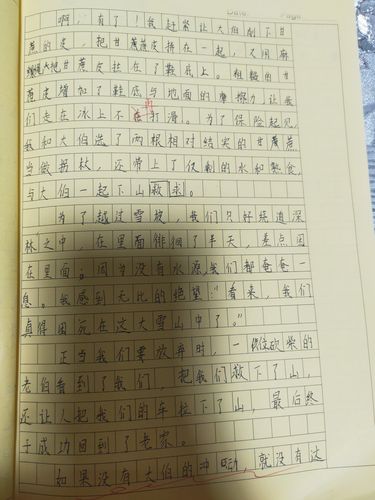 啊，有了！我赶紧让大伯削下甘
蔗的皮，把甘蔗皮拼在一起，又用麻
绳把甘蔗皮拴在了鞋底上。粗糙的甘
蔗皮增加了鞋底与地面的摩擦力，让我
们走在冰上不再打滑。为了保险起见，
我和大伯选了两根相对结实的甘蔗
当做拐杖，还带上了仅剩的水和熟食，
与大伯一起下山救
为了越过雪坡，我们只好绕道深
林之中，在里面徘徊了半天，差点困
在里面。因为没有水源，我们都奄奄一
息。我感到无比的绝望：“看来，我们
真得困死在这大雪山中了。”
正当我们要放弃时，一位砍柴的
老伯看到了我们，把我们救下了山，
还让人把我们的车拉下了山，最后终
于成功回到了老家。
如果没有大伯的冲动，就没有这